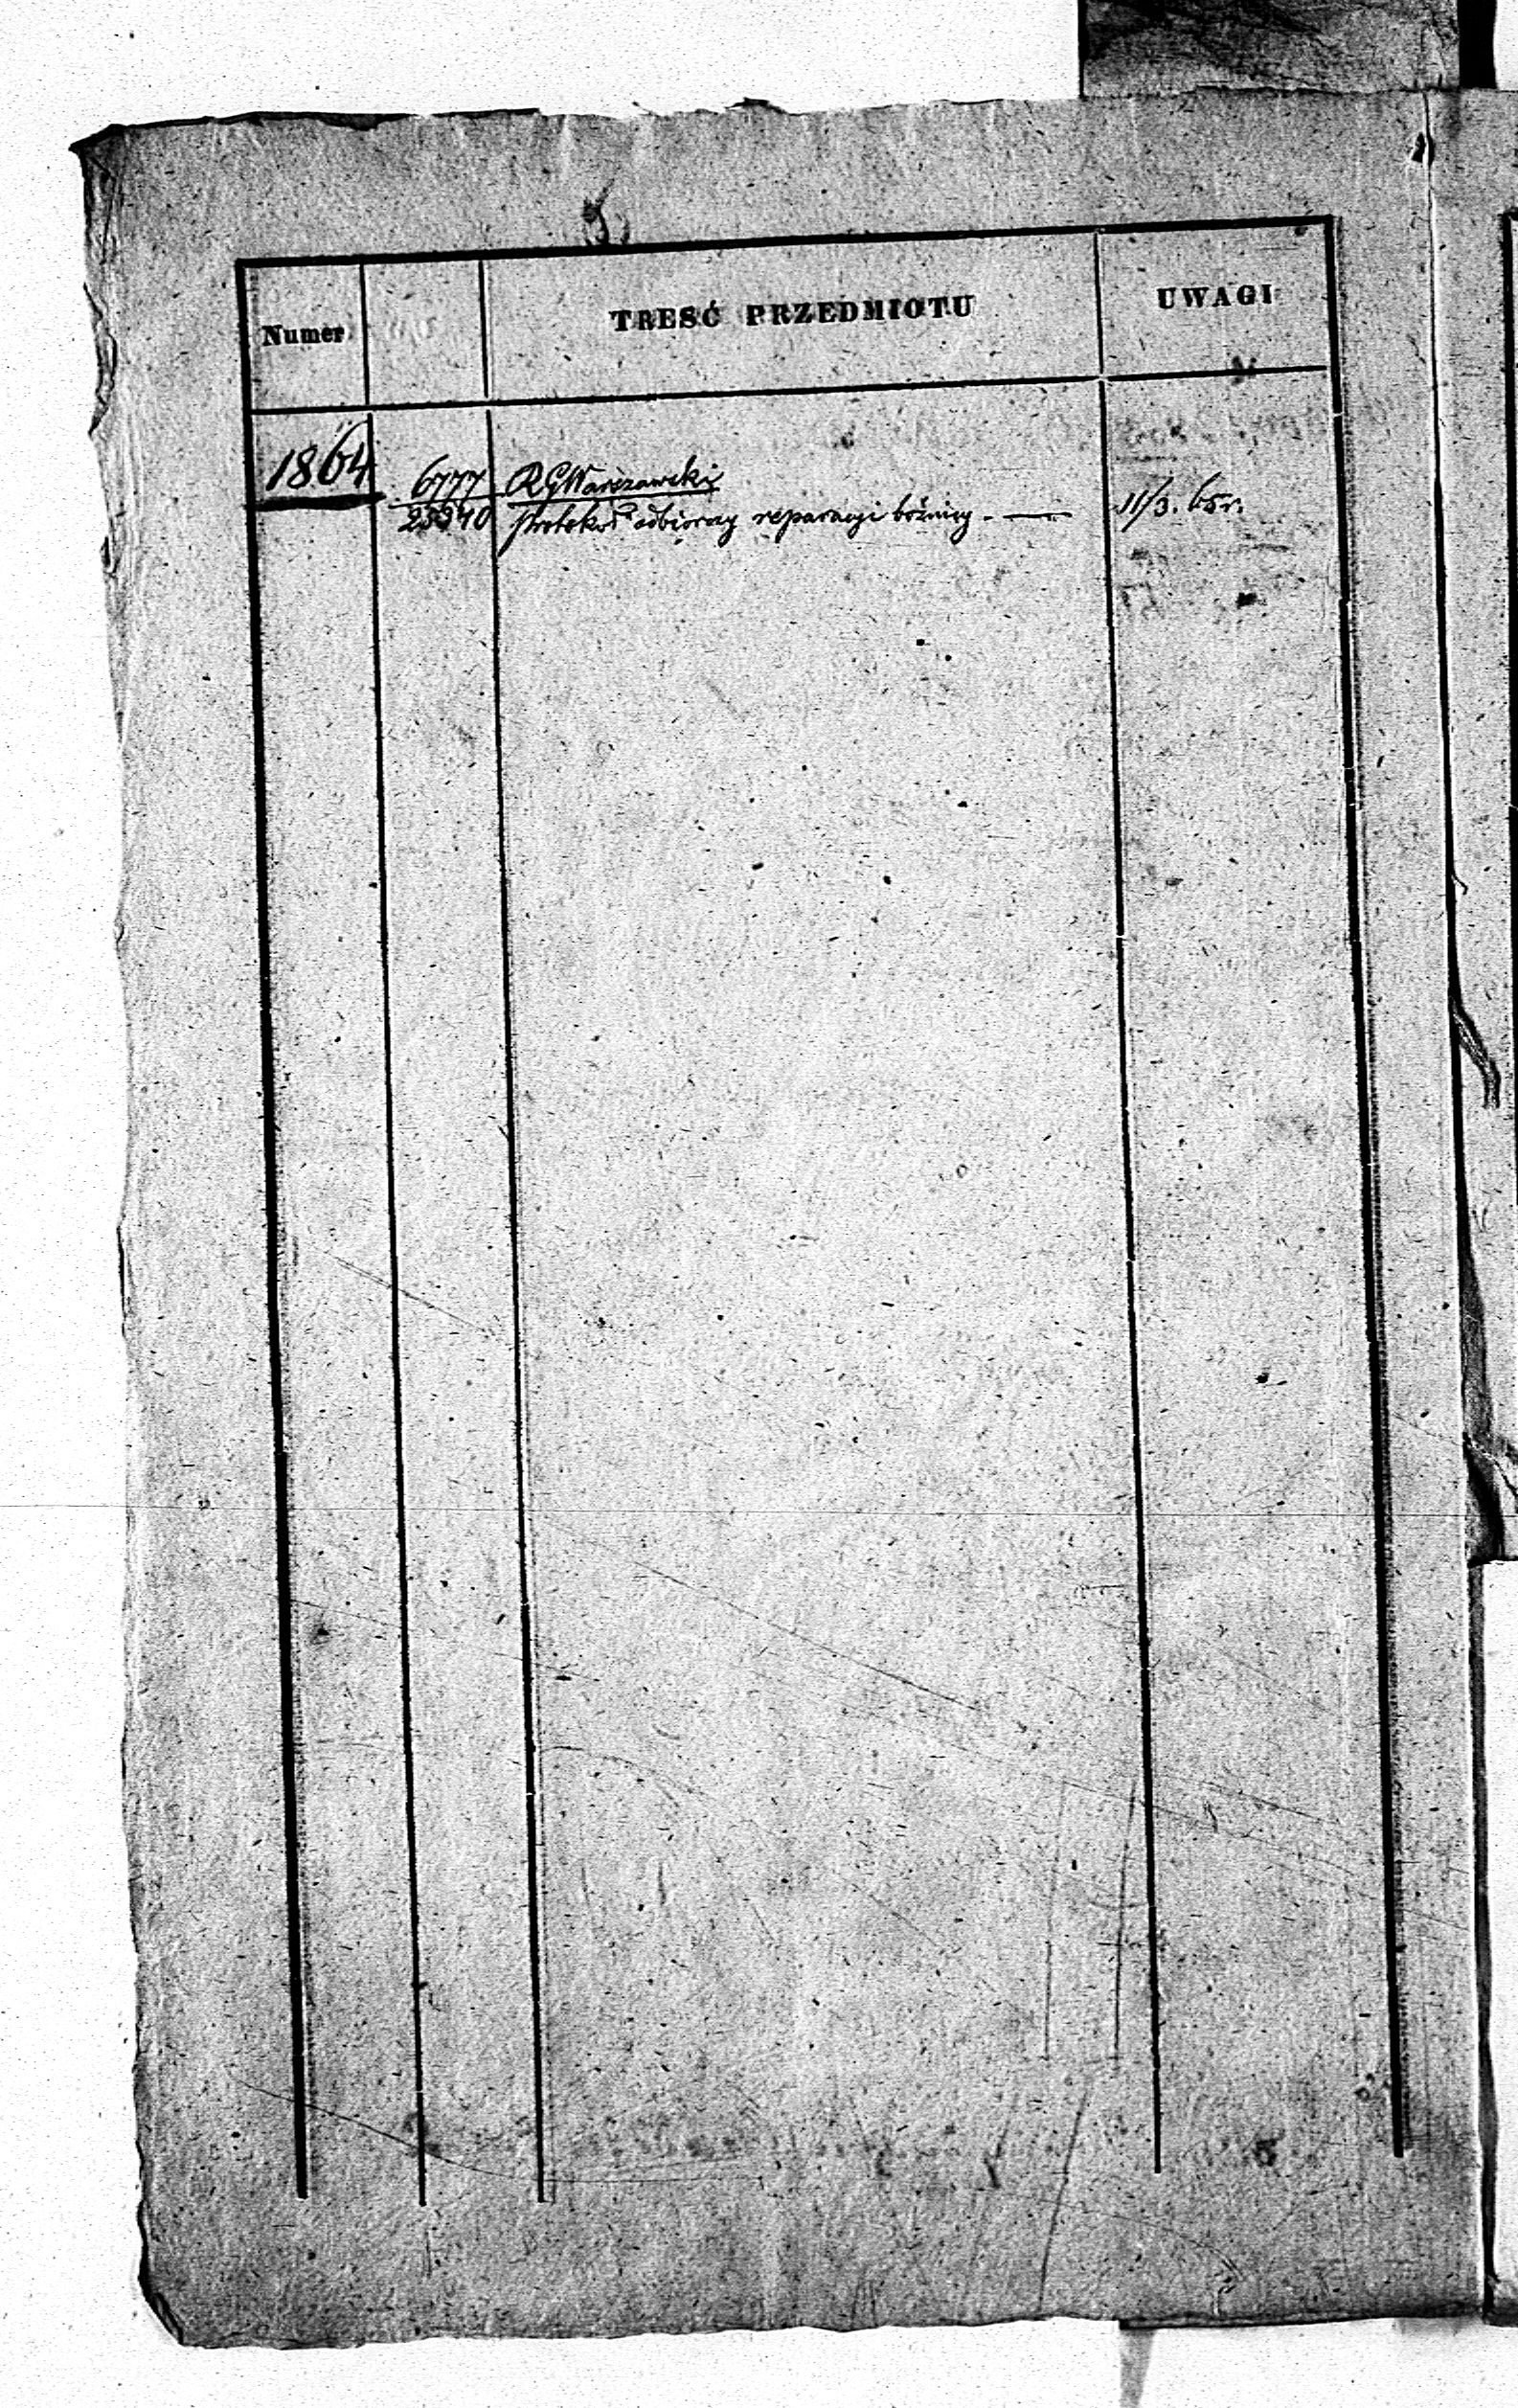 Numer TRESĆ PRZEDMIOTU UWAGI
1864 6777 RGWarszawski
23940 Protokół odbiorczy reparacyi bóżnicy. — 11/3. 65r.